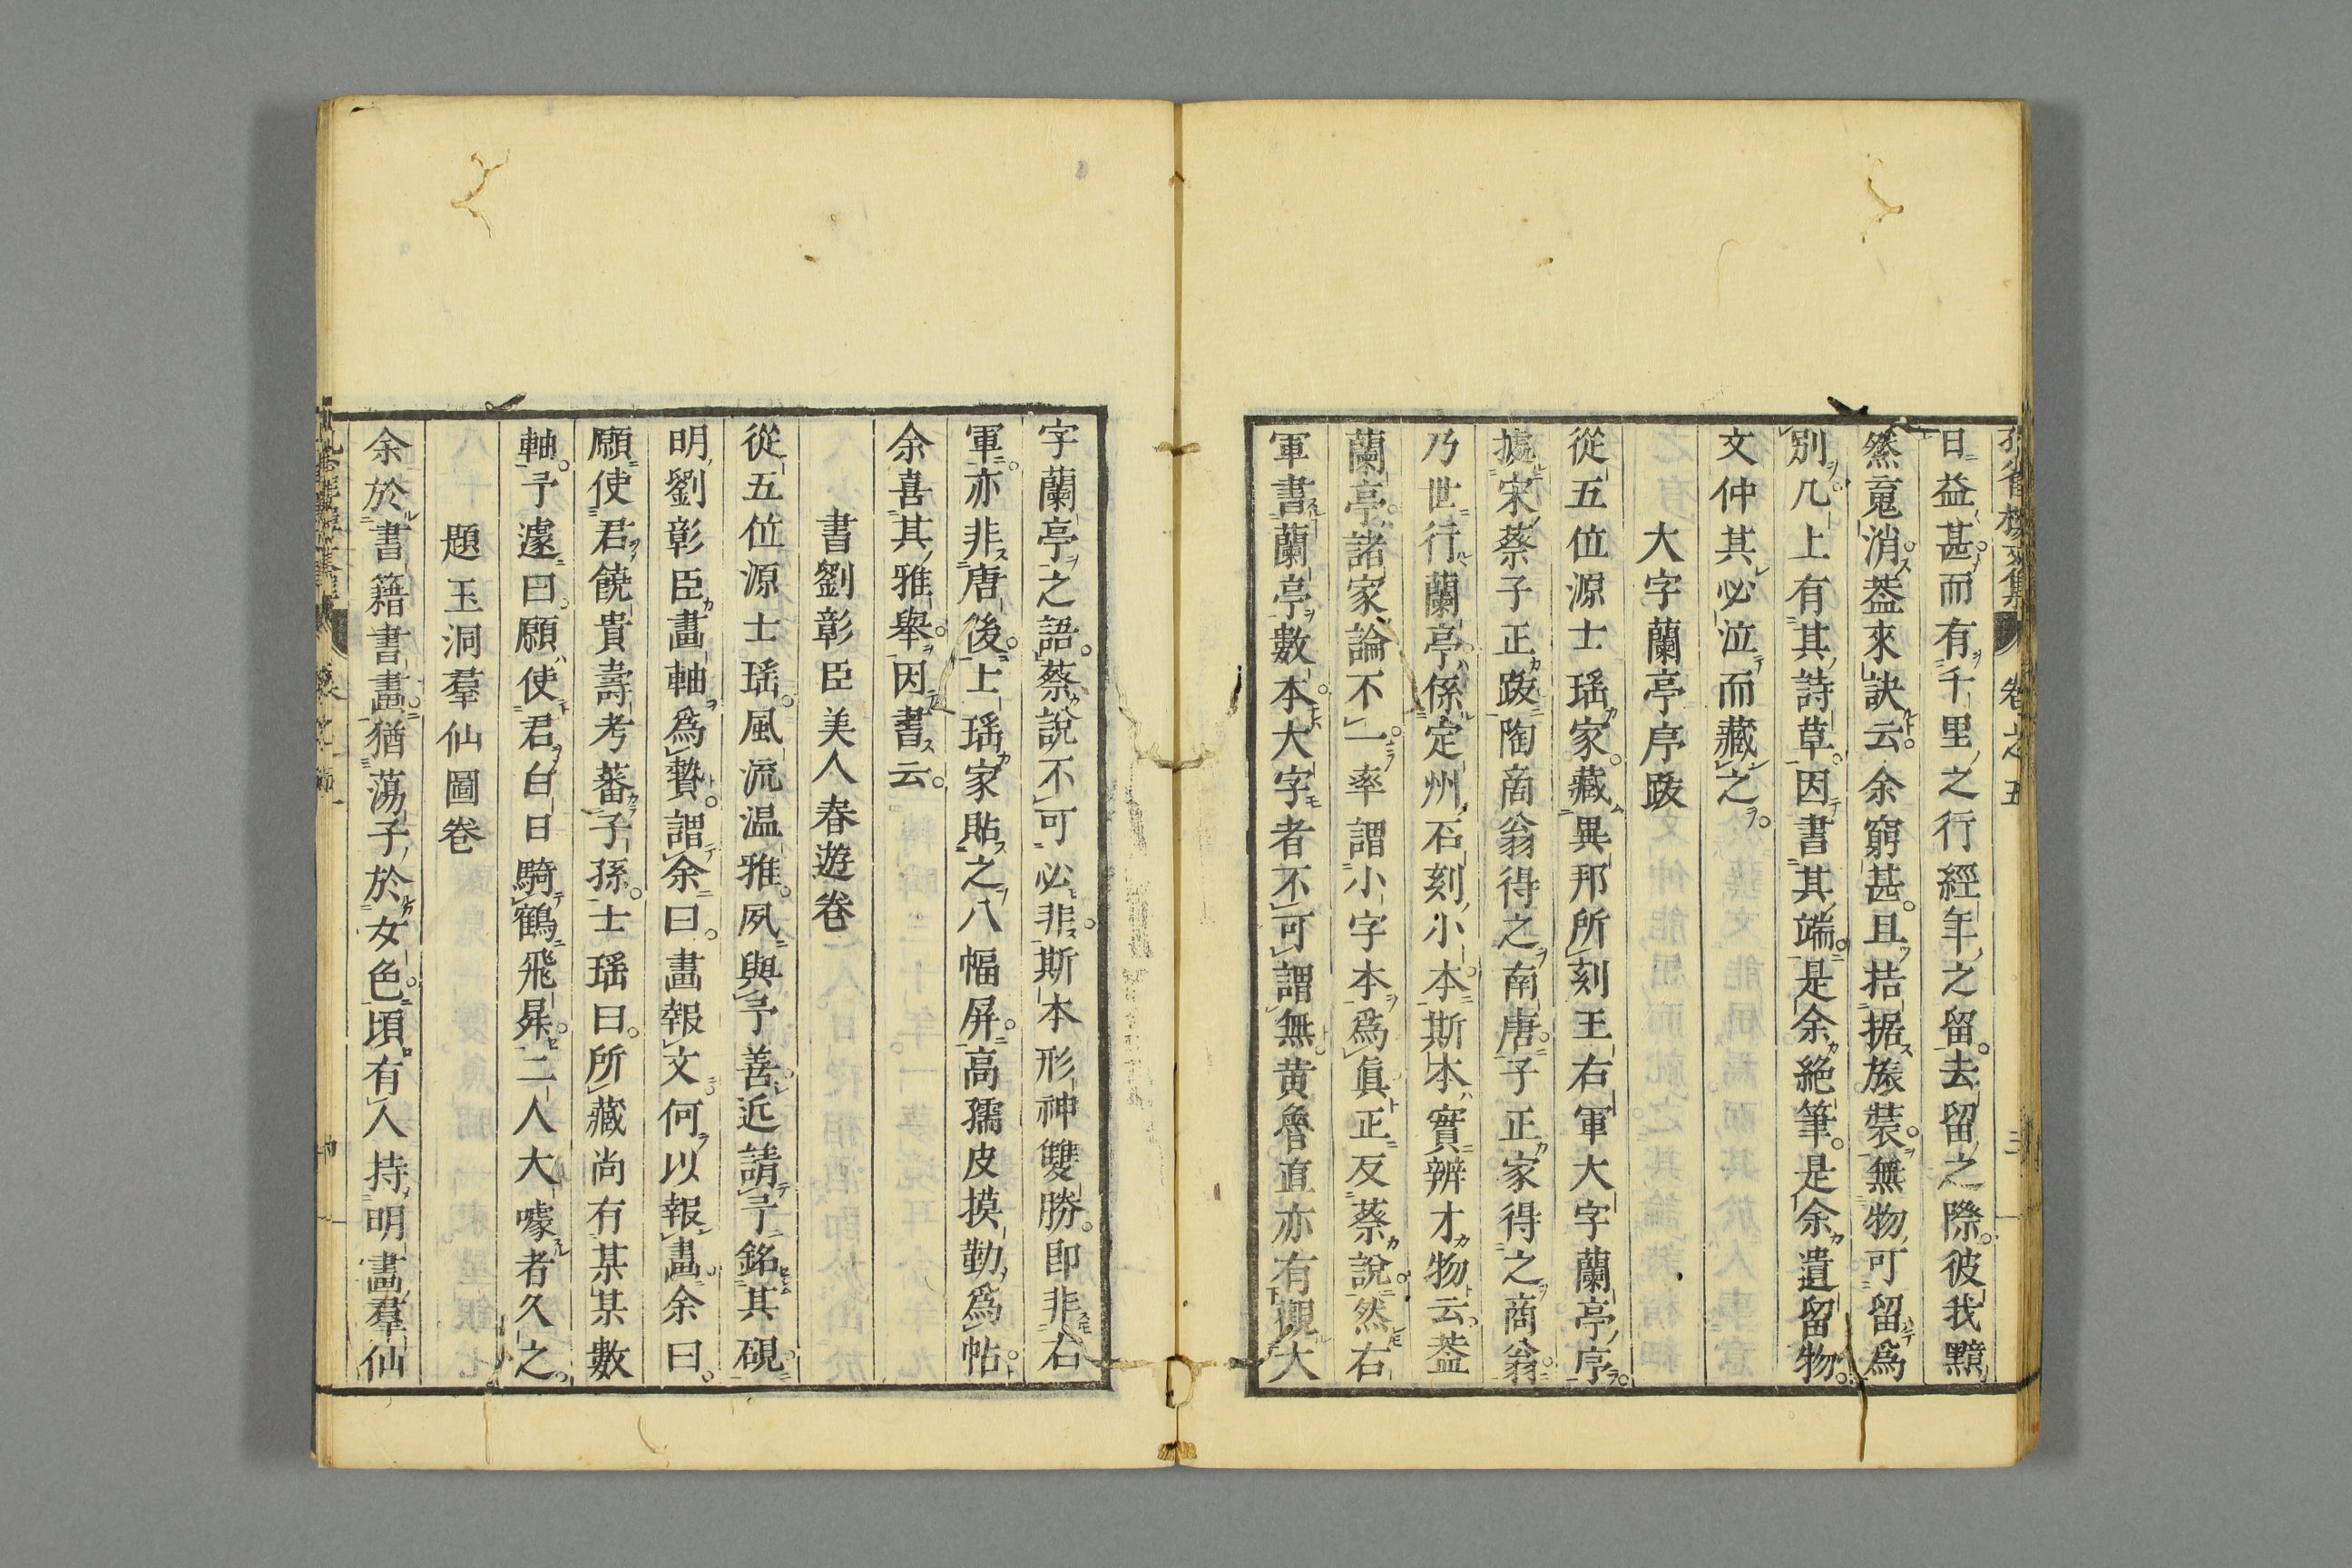 卷之五
日益甚而有千里之行經年之留去留之際彼我黯
然䰟消葢來訣云余窮甚且拮据旅裝無物可留爲
別几上有其詩草因書其端是余絶筆是余遺留物
文仲其必泣而藏之
大字蘭亭序跋
從五位源士瑤家藏異邦所刻王右軍大字蘭亭序
據宋蔡子正跋陶商翁得之南唐子正家得之商翁
乃世行蘭亭係定州石刻小本斯本實辨才物云葢
蘭亭諸家論不一率謂小字本爲眞正反蔡說然右
軍書蘭亭數本大字者不可謂無黃魯直亦有觀大
字蘭亭之語蔡說不可必非斯本形神雙勝即非右
軍亦非唐後上瑤家貼之八幅屏高孺皮摸勒爲帖
余喜其雅舉因書云
書劉彰臣美人春遊卷
從五位源士瑤風流温雅夙與予善近請予銘其硯
明劉彰臣畫軸爲贄謂余曰畫報文何以報畫余曰
願使君饒貴壽考蕃子孫士瑤曰所藏尚有某某數
軸予遽曰願使君白日騎鶴飛昇二人大噱者久之
題玉洞羣仙圖卷
余於書籍書畫猶蕩子於女色頃有人持明畫羣仙